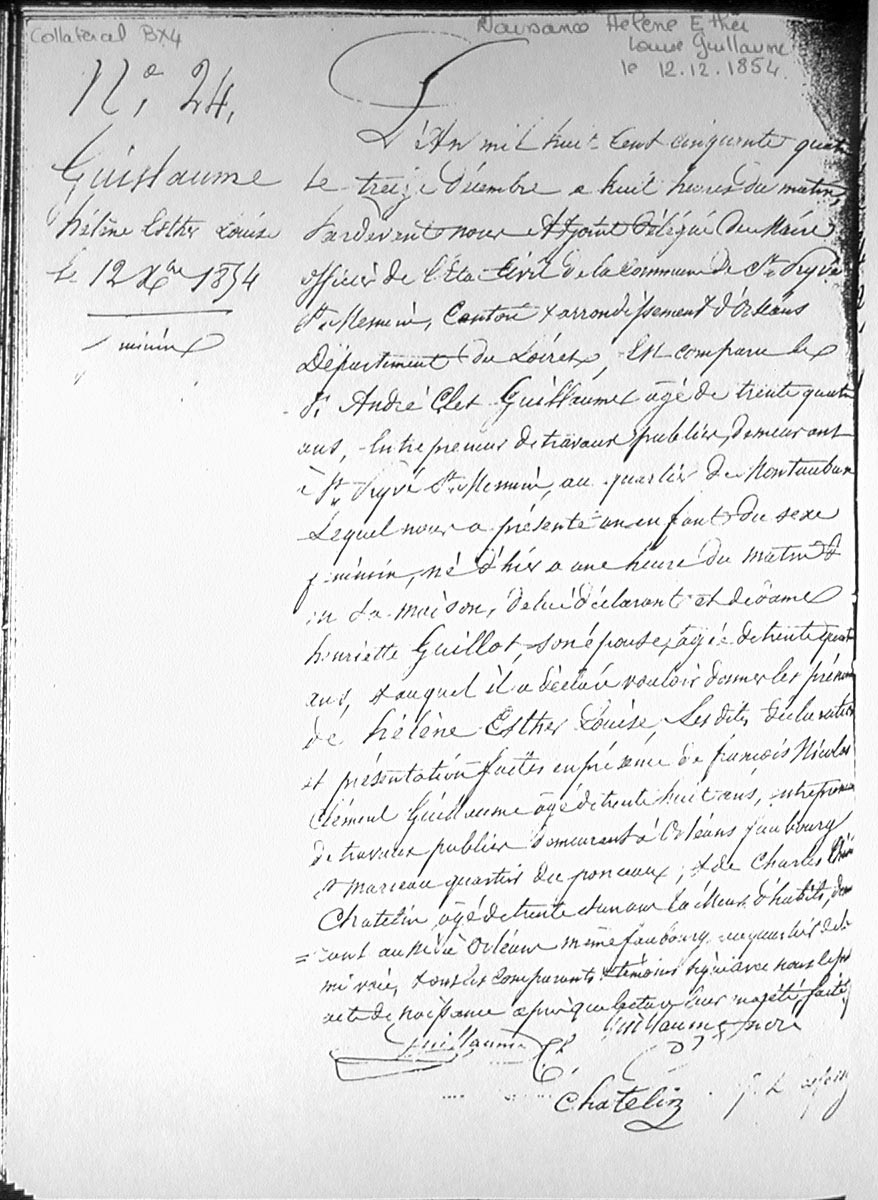 Collateral BX4
Naissance Hélène Esther
Louise Guillaume
le 12.12.1854.
N° 24,
Guillaume
hélène Esther Louise
le 12 Xbre 1854
féminin
L'An mil huit Cent cinquante quatre
Le treize Décembre a huit heures du matin,
Pardevant nous Adjoint Délégué du Maire
officier de l'État Civil de la Commune de St Pryvé
St Mesmin, Canton & arrondissement d'Orléans
Département du Loiret, Est comparu le
Sr André Clet Guillaume âgé de trente quatre
ans, Entrepreneur de travaux publics, demeurant
à St Pryvé St Mesmin, au quartier de Montauban
Lequel nous a présenté un enfant du sexe
féminin, né d'hier a une heure du matin
en sa maison, de lui déclarant et de dame
henriette Guillot, son épouse, âgée de trente quatre
ans, & auquel il a déclaré vouloir donner les prénoms
de hélène Esther Louise, Les dites déclaration
et présentation faites en présence de françois Nicolas
Clément Guillaume âgé de trente huit ans, entrepreneur
de travaux publics demeurant à Orléans faubourg
St Marceau quartier des ponceaux, & de Charles
Chatelin âgé de trente et un ans tailleur d'habits, demeu
=rant aussi à Orléans même faubourg au quartier de
mi voie, & ont les comparants & témoins signé avec nous le pst
acte de naissance après que lecture leur en a été faite
Guillaume Ct
Guillaume
Chatelin